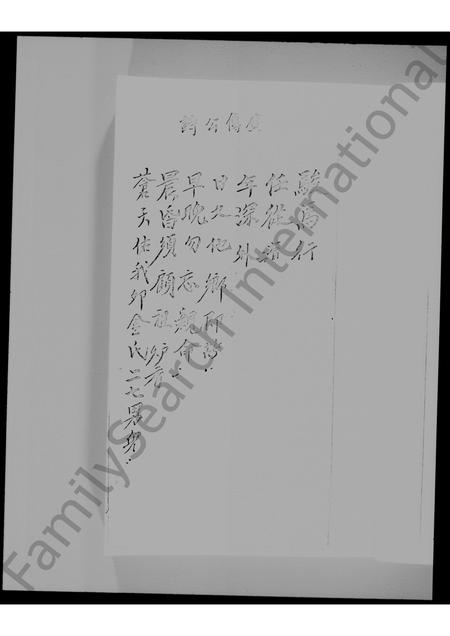 廣傳公詩
駿馬行
任從
年深外
日久他鄉即
早晚勿忘親命
晨昏須顧祖炉香
蒼天佑我卯金氏二七男
FamilySearch International